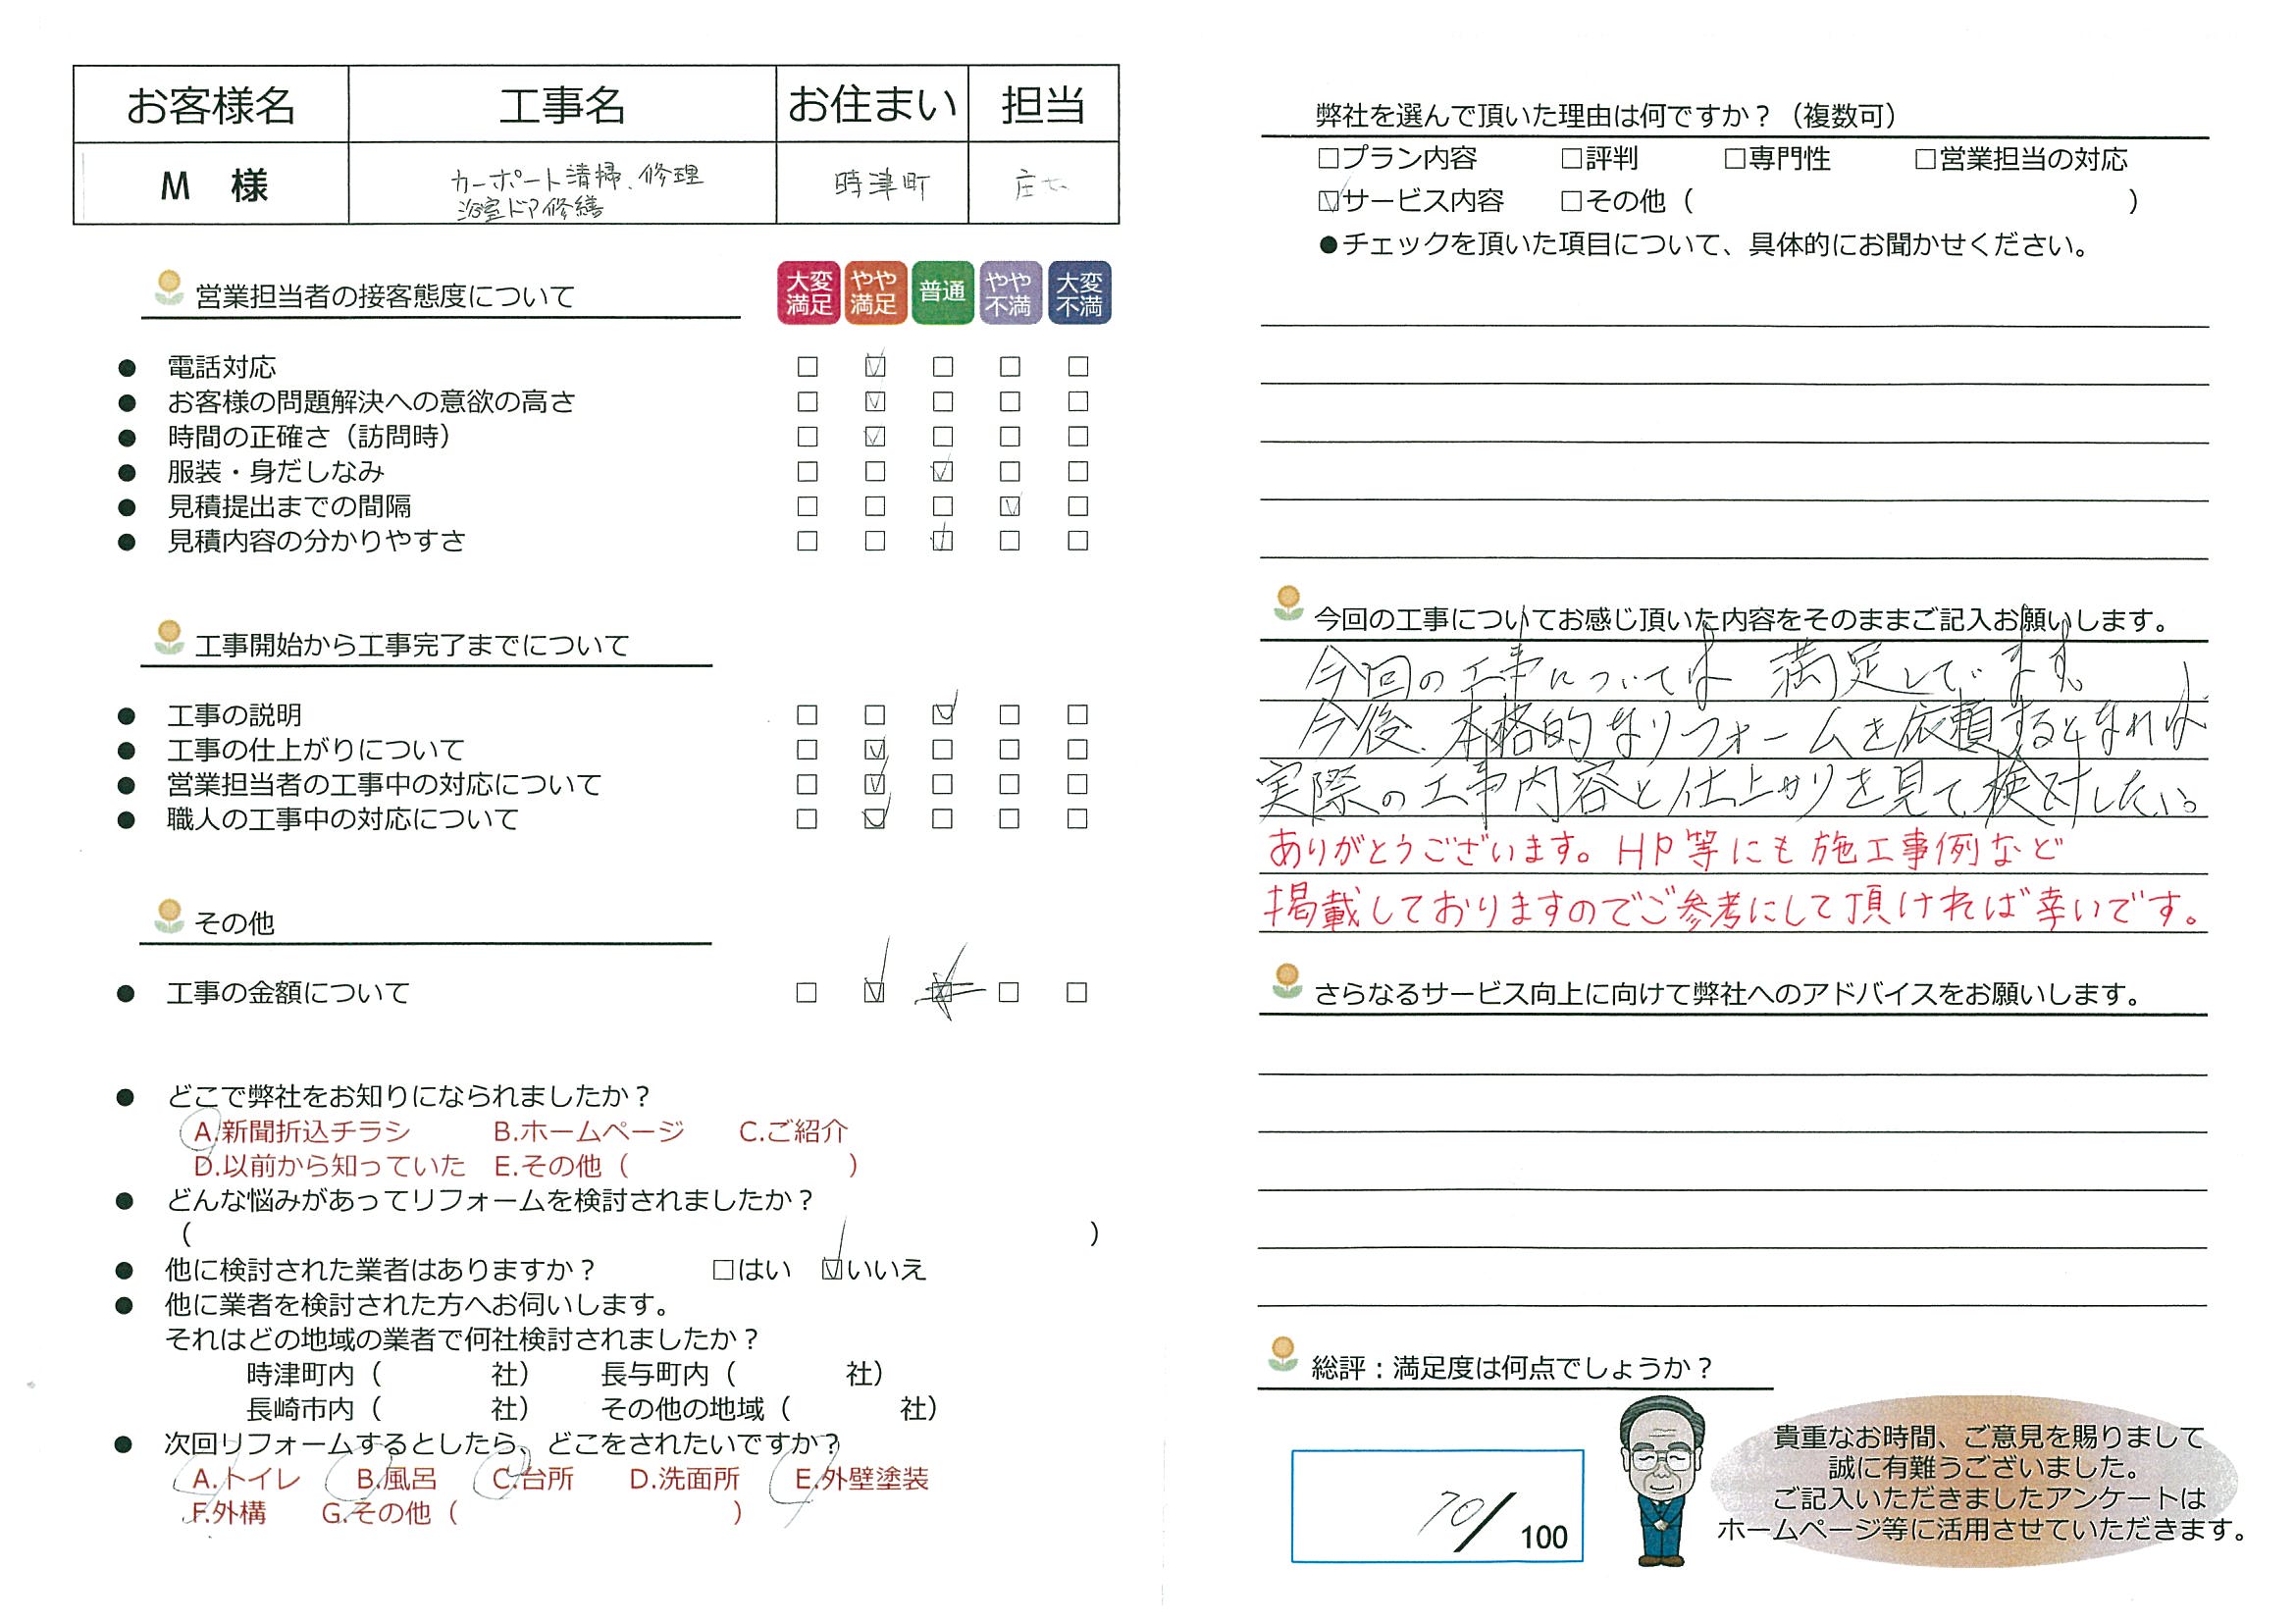 お客様名 工事名 お住まい 担当
M 様 カーポート清掃、修理 時津町
浴室ドア修繕
営業担当者の接客態度について
大変満足 やや満足 普通 やや不満 大変不満
● 電話対応 □ ☑ □ □ □
● お客様の問題解決への意欲の高さ □ ☑ □ □ □
● 時間の正確さ（訪問時） □ ☑ □ □ □
● 服装・身だしなみ □ □ ☑ □ □
● 見積提出までの間隔 □ □ □ ☑ □
● 見積内容の分かりやすさ □ □ ☑ □ □
工事開始から工事完了までについて
● 工事の説明 □ □ ☑ □ □
● 工事の仕上がりについて □ ☑ □ □ □
● 営業担当者の工事中の対応について □ ☑ □ □ □
● 職人の工事中の対応について □ ☑ □ □ □
その他
● 工事の金額について □ ☑ ☑ □ □
● どこで弊社をお知りになられましたか？
A.新聞折込チラシ B.ホームページ C.ご紹介
D.以前から知っていた E.その他（ ）
● どんな悩みがあってリフォームを検討されましたか？
（ ）
● 他に検討された業者はありますか？ □はい ☑いいえ
● 他に業者を検討された方へお伺いします。
それはどの地域の業者で何社検討されましたか？
時津町内（ 社） 長与町内（ 社）
長崎市内（ 社） その他の地域（ 社）
● 次回リフォームするとしたら、どこをされたいですか？
A.トイレ B.風呂 C.台所 D.洗面所 E.外壁塗装
F.外構 G.その他（ ）
弊社を選んで頂いた理由は何ですか？（複数可）
□プラン内容 □評判 □専門性 □営業担当の対応
☑サービス内容 □その他（ ）
●チェックを頂いた項目について、具体的にお聞かせください。
今回の工事についてお感じ頂いた内容をそのままご記入お願いします。
今回の工事については 満足しています。
今後、本格的なリフォームを依頼するとなれば
実際の工事内容と仕上がりを見て、検討したい。
ありがとうございます。HP等にも施工事例など
掲載しておりますのでご参考にして頂ければ幸いです。
さらなるサービス向上に向けて弊社へのアドバイスをお願いします。
総評：満足度は何点でしょうか？
70/100
貴重なお時間、ご意見を賜りまして
誠に有難うございました。
ご記入いただきましたアンケートは
ホームページ等に活用させていただきます。